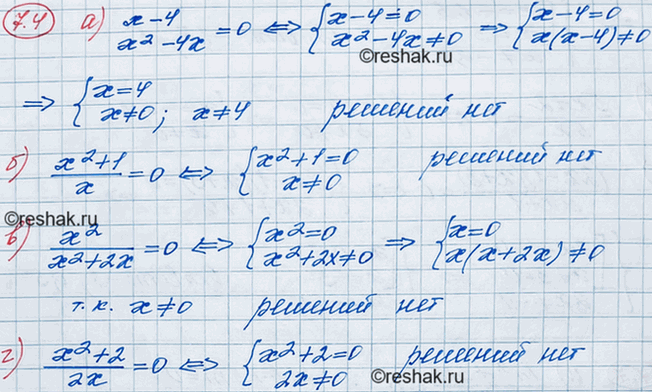 7.4 а) x-4/x²-4x = 0 ⇔ {x-4=0 x²-4x≠0 ⇒ {x-4=0 x(x-4)≠0
©reshak.ru
⇒ {x=4 x≠0; x≠4 решений нет
б) x²+1/x = 0 ⇔ {x²+1=0 x≠0 решений нет
©reshak.ru
в) x²/x²+2x = 0 ⇔ {x²=0 x²+2x≠0 ⇒ {x=0 x(x+2x)≠0
©reshak.ru
т.к. x≠0 решений нет
г) x²+2/2x = 0 ⇔ {x²+2=0 2x≠0 решений нет